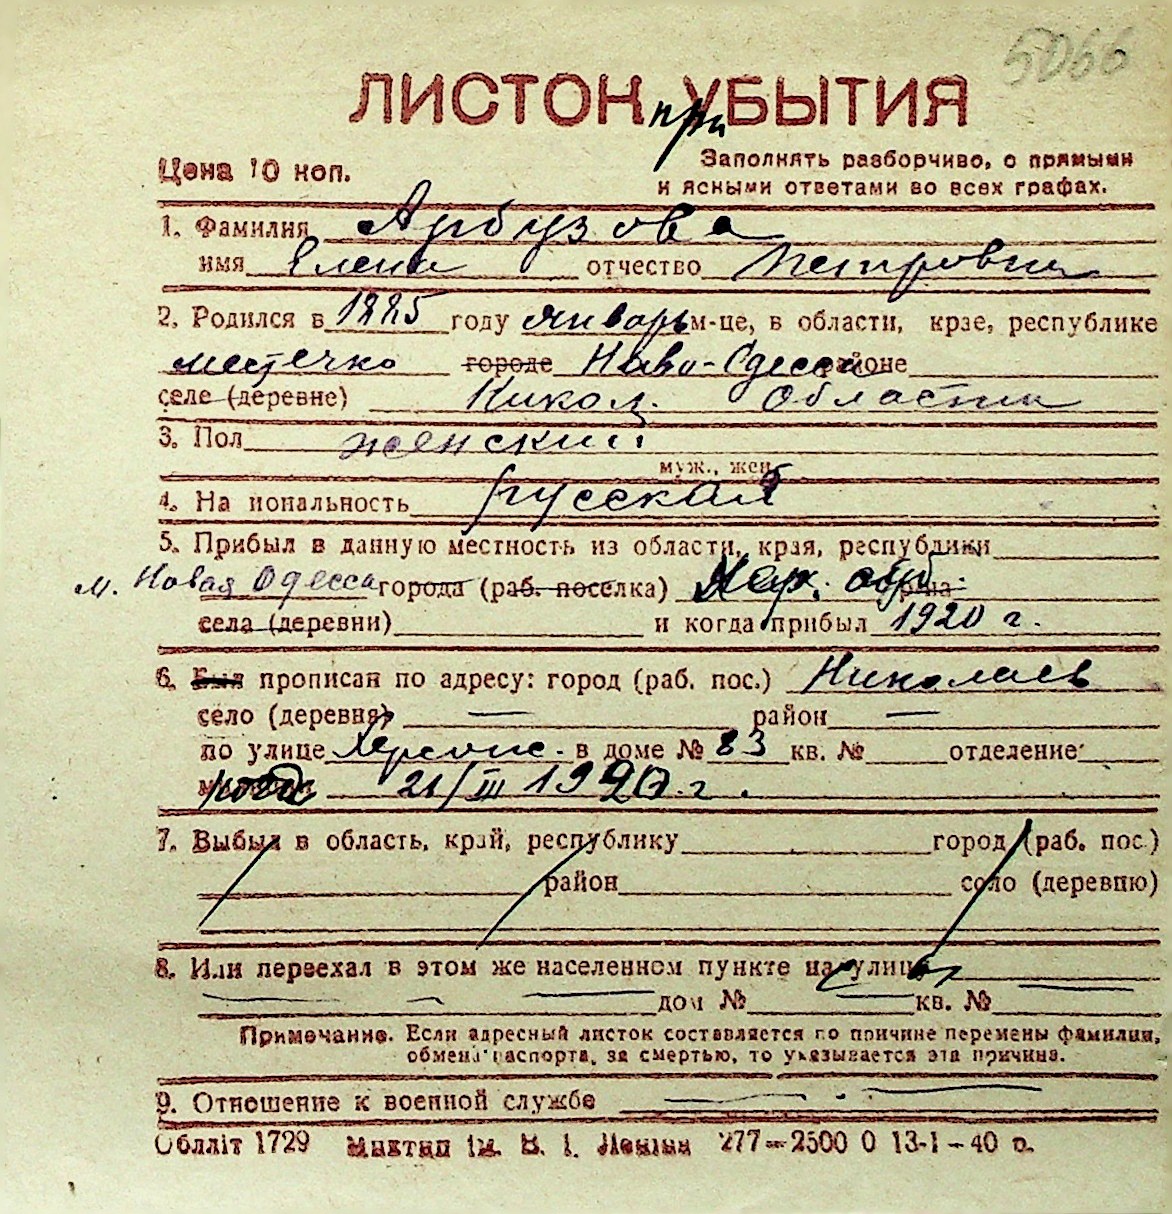 5066
ЛИСТОК при УБЫТИЯ
Цена 10 коп.
Заполнять разборчиво, с прямыми
и ясными ответами во всех графах.
1. Фамилия Арбузова
имя Елена отчество Петровна
2. Родился в 1885 году январь м-це, в области, крае, республике
местечко городе Ново-Одесса районе
селе (деревне) Никол. Области
3. Пол женский
муж., жен.
4. На иональность русская
5. Прибыл в данную местность из области, края, республики
м. Новая Одесса города (раб. поселка)
села (деревни) и когда прибыл 1920 г.
6. Был прописан по адресу: город (раб. пос.) Николаев
село (деревня) — район —
по улице Херсонс. в доме № 83 кв. № отделение
21/III 1920 г.
7. Выбыл в область, край, республику город (раб. пос.)
район село (деревню)
8. Или переехал в этом же населенном пункте на улицу
дом № кв. №
Примечание. Если адресный листок составляется по причине перемены фамилии,
обмена паспорта, за смертью, то указывается эта причина.
9. Отношение к военной службе
Обллiт 1729 iм. В. I. Леніна 277—2500 0 13-1-40 р.